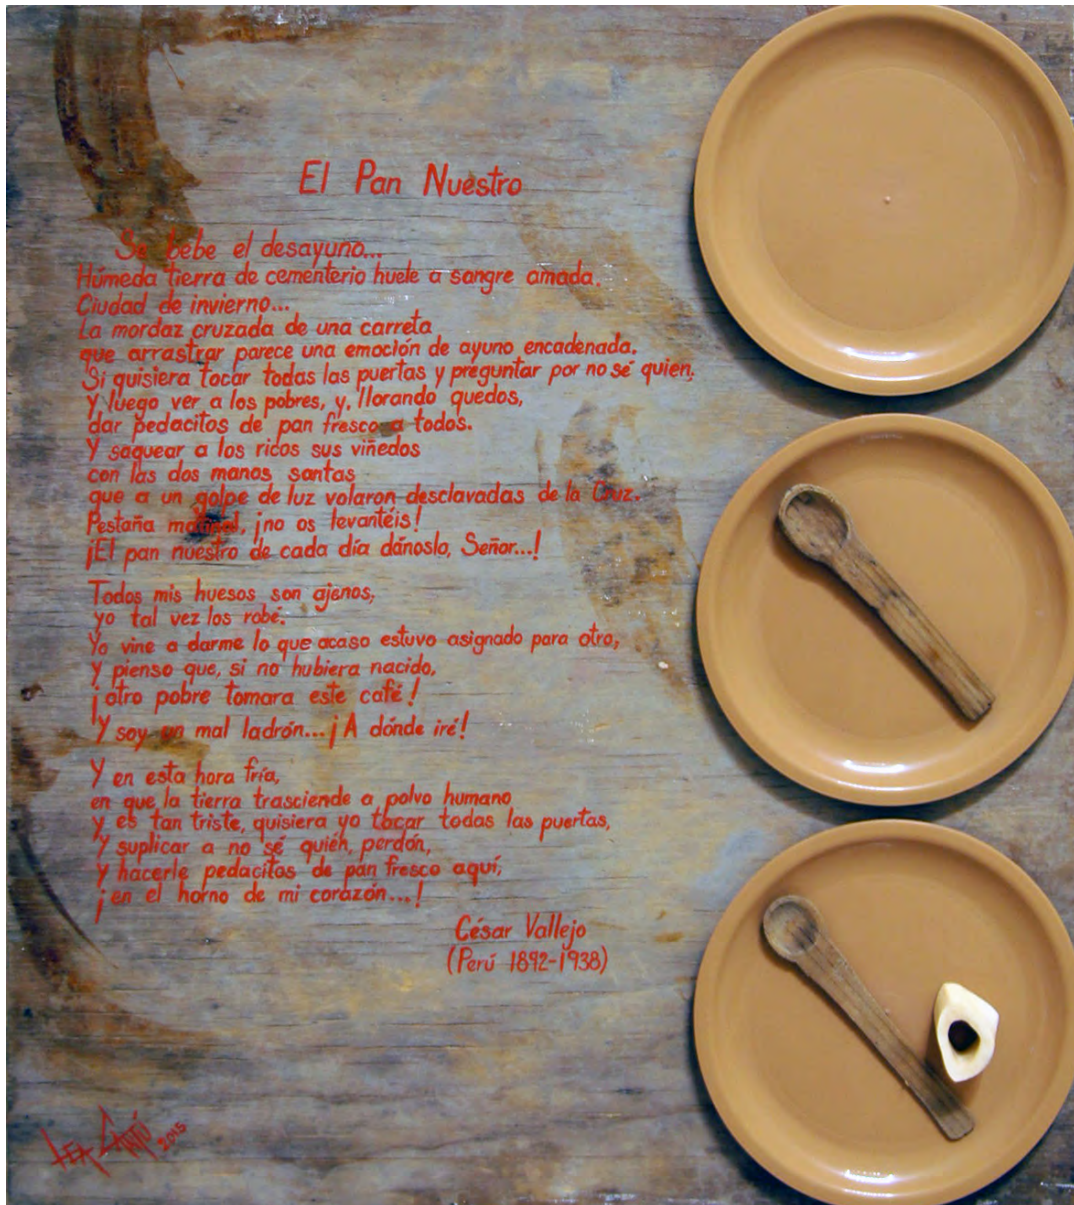 El Pan Nuestro
Se bebe el desayuno...
Húmeda tierra de cementerio huele a sangre amada.
Ciudad de invierno...
La mordaz cruzada de una carreta
que arrastrar parece una emoción de ayuno encadenada.
Si quisiera tocar todas las puertas y preguntar por no sé quien;
y luego ver a los pobres, y, llorando quedos,
dar pedacitos de pan fresco a todos.
Y saquear a los ricos sus viñedos
con las dos manos santas
que a un golpe de luz volaron desclavadas de la Cruz.
Pestaña matinal, ¡no os levantéis!
¡El pan nuestro de cada día dánoslo, Señor...!
Todos mis huesos son ajenos;
yo tal vez los robé.
Yo vine a darme lo que acaso estuvo asignado para otro;
y pienso que, si no hubiera nacido,
¡otro pobre tomara este café!
Y soy un mal ladrón... ¡A dónde iré!
Y en esta hora fría,
en que la tierra trasciende a polvo humano
y es tan triste, quisiera yo tocar todas las puertas,
y suplicar a no sé quién, perdón,
y hacerle pedacitos de pan fresco aquí,
¡en el horno de mi corazón...!
César Vallejo
(Perú 1892-1938)
2015